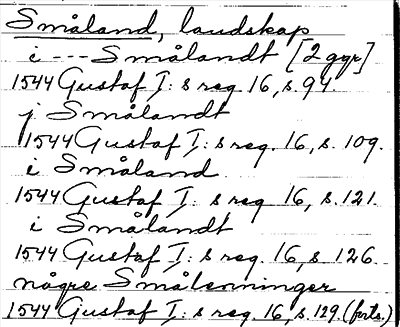 Småland, landskap
i --- Smålandt [2 ggr]
1544 Gustaf I: s reg. 16, s. 94.
j Smålandt
1544 Gustaf I: s reg. 16, s. 109.
i Småland
1544 Gustaf I: s reg 16, s. 121.
i Smålandt
1544 Gustaf I: s reg. 16, s 126.
någre Smålenninger
1544 Gustaf I: s reg. 16, s. 129. (forts.)